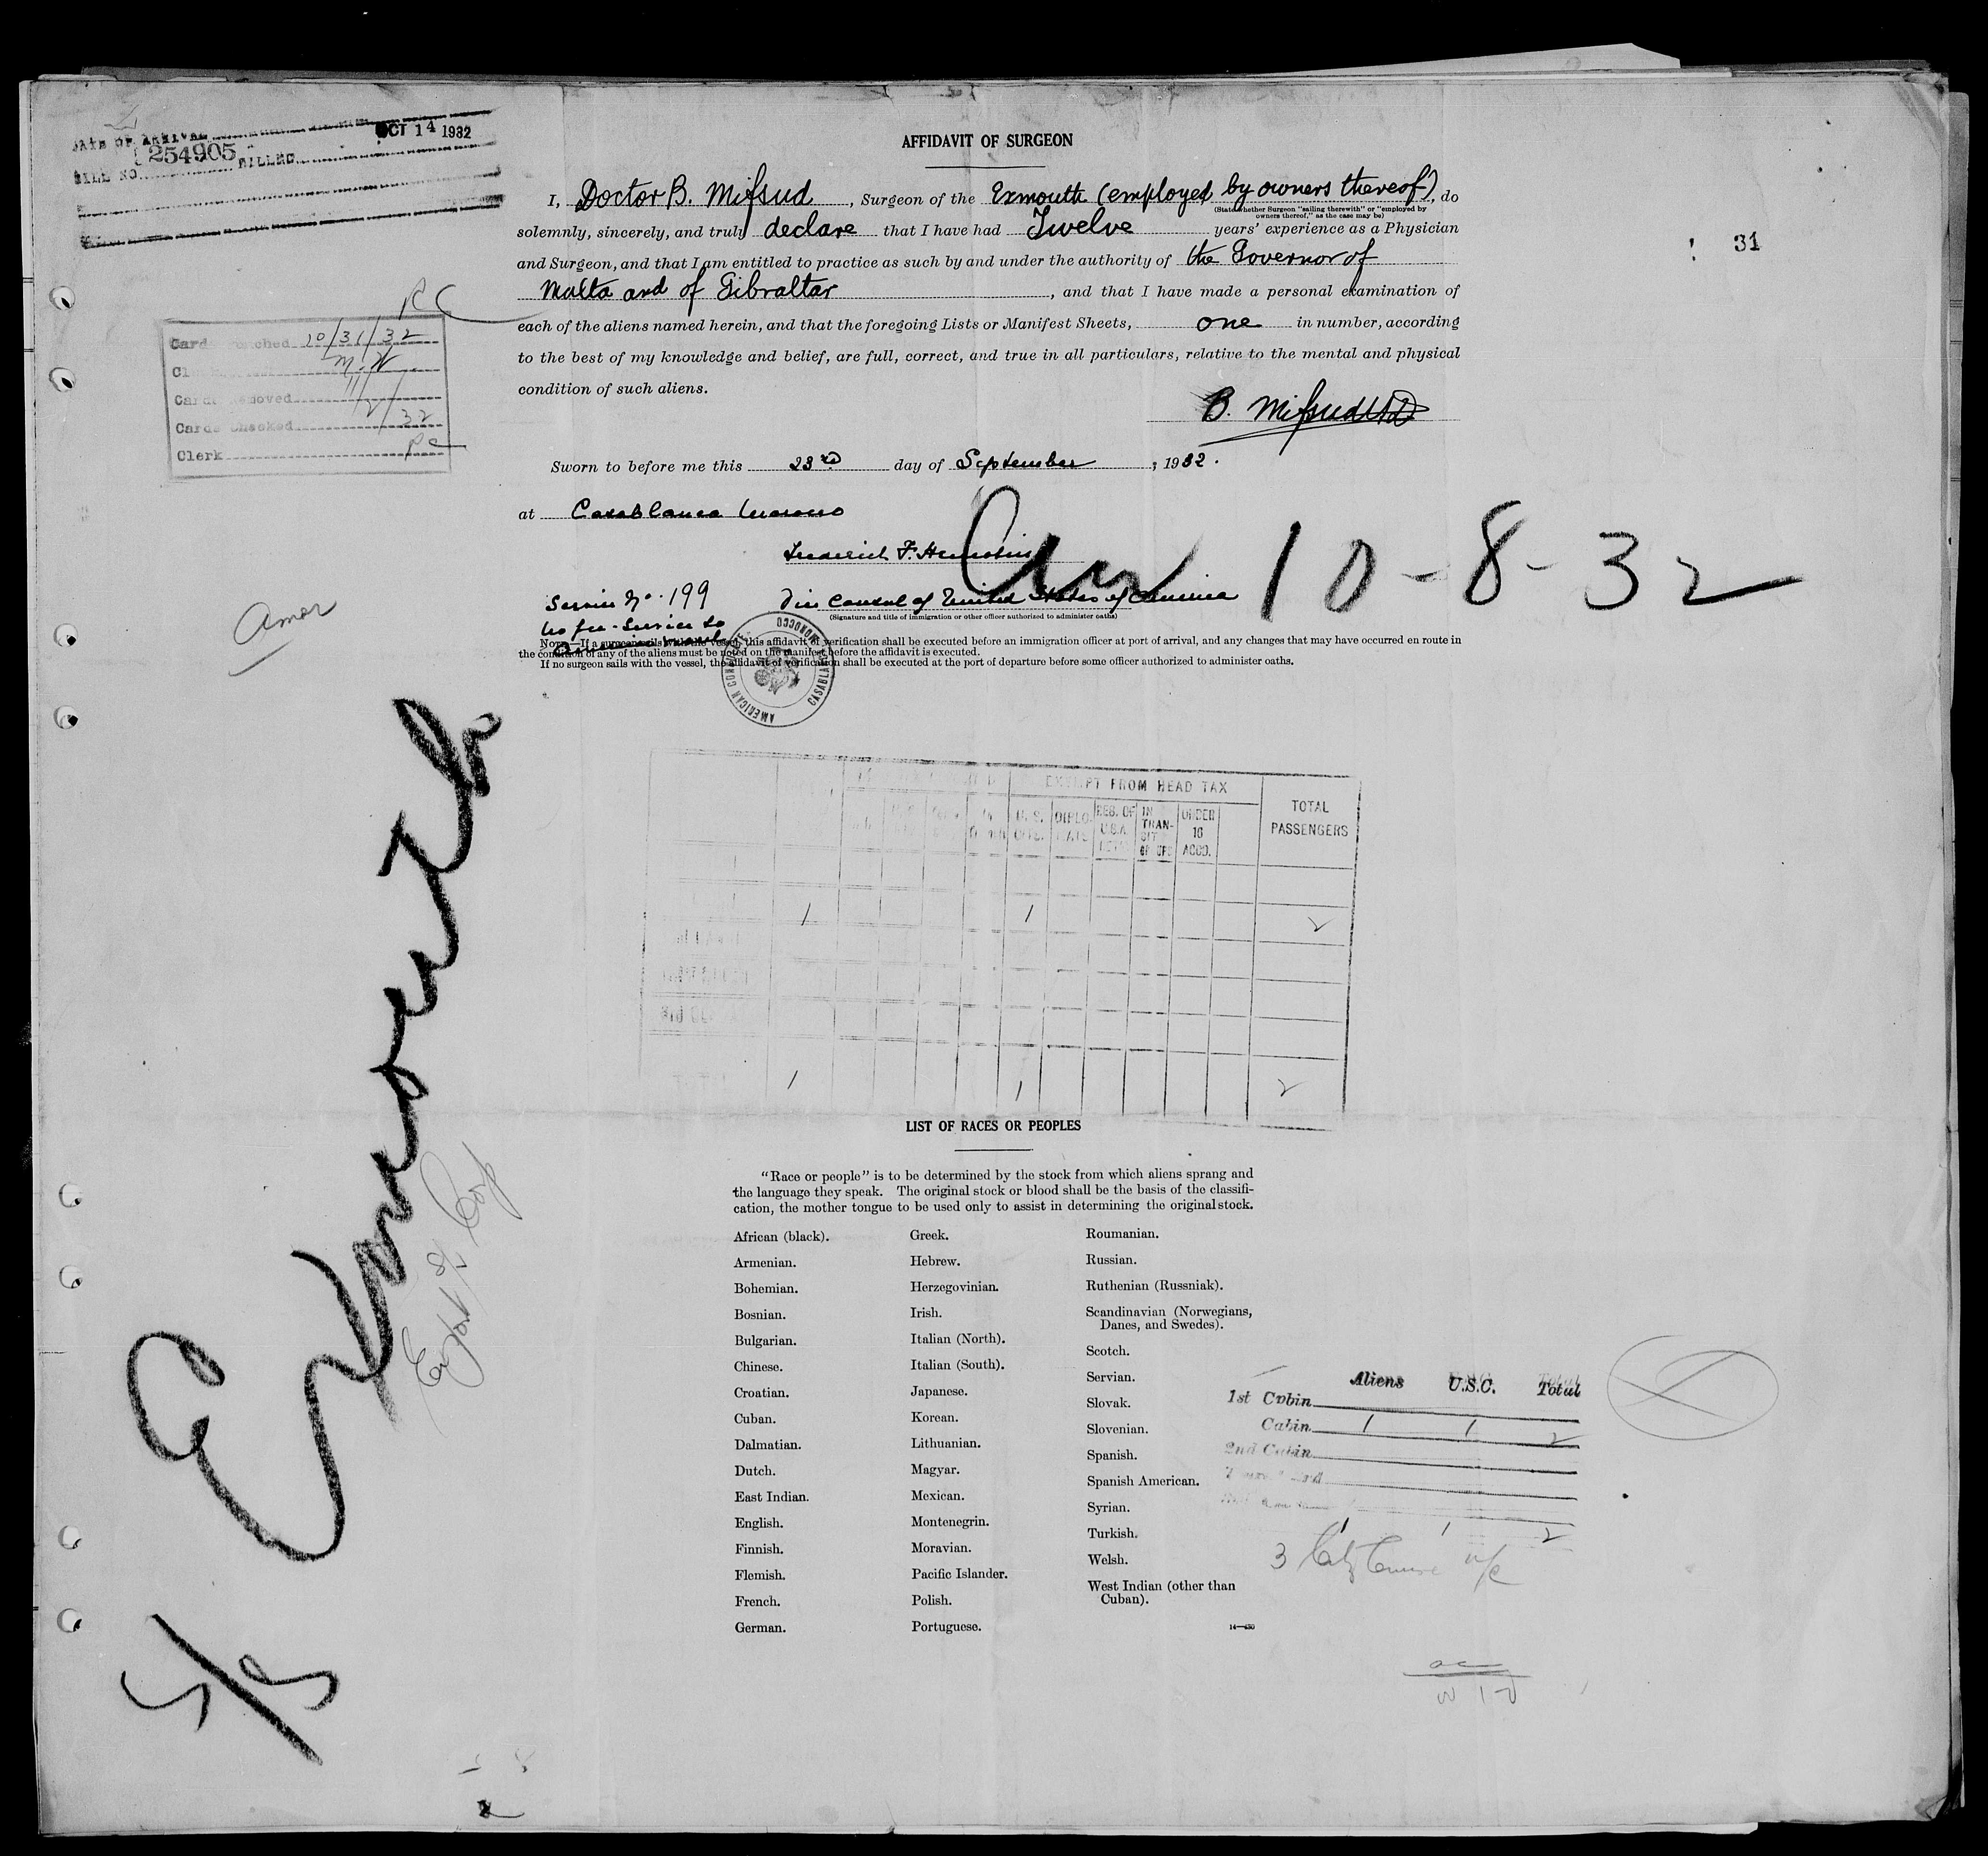 DATE OF ARRIVAL OCT 14 1932
BILL NO. 254905 BILLED
31
AFFIDAVIT OF SURGEON
I, Doctor B. Mifsud, Surgeon of the Exmouth (employed by owners thereof), do
(State whether Surgeon "sailing therewith" or "employed by
owners thereof," as the case may be)
solemnly, sincerely, and truly declare that I have had Twelve years' experience as a Physician
and Surgeon, and that I am entitled to practice as such by and under the authority of the Governor of
Malta and of Gibraltar, and that I have made a personal examination of
each of the aliens named herein, and that the foregoing Lists or Manifest Sheets, one in number, according
to the best of my knowledge and belief, are full, correct, and true in all particulars, relative to the mental and physical
condition of such aliens.
B. Mifsud MD
RC
Cards 10/31/32
M.N.
Cards Removed 11/2/32
Cards Checked
Clerk RC
Sworn to before me this 23rd day of September, 1932.
at Casablanca Morocco
Arr 10-8-32
Service No. 199
Vice Consul of United States of America
(Signature and title of immigration or other officer authorized to administer oaths)
No fee - Service to
American vessel
AMERICAN CONSULATE CASABLANCA MOROCCO
NOTE.—If a surgeon sails with the vessel, this affidavit of verification shall be executed before an immigration officer at port of arrival, and any changes that may have occurred en route in
the condition of any of the aliens must be noted on the manifest before the affidavit is executed.
If no surgeon sails with the vessel, the affidavit of verification shall be executed at the port of departure before some officer authorized to administer oaths.
S/S Exmouth
Export SS Corp
EXEMPT FROM HEAD TAX
TOTAL
PASSENGERS
U.S. CITS.
DIPLO-MATS
RES. OF U.S.A.
IN TRAN-SIT
UNDER 16 ACCD.
1 1 2
1 1 2
LIST OF RACES OR PEOPLES
"Race or people" is to be determined by the stock from which aliens sprang and
the language they speak. The original stock or blood shall be the basis of the classifi-
cation, the mother tongue to be used only to assist in determining the original stock.
African (black).
Armenian.
Bohemian.
Bosnian.
Bulgarian.
Chinese.
Croatian.
Cuban.
Dalmatian.
Dutch.
East Indian.
English.
Finnish.
Flemish.
French.
German.
Greek.
Hebrew.
Herzegovinian.
Irish.
Italian (North).
Italian (South).
Japanese.
Korean.
Lithuanian.
Magyar.
Mexican.
Montenegrin.
Moravian.
Pacific Islander.
Polish.
Portuguese.
Roumanian.
Russian.
Ruthenian (Russniak).
Scandinavian (Norwegians,
Danes, and Swedes).
Scotch.
Servian.
Slovak.
Slovenian.
Spanish.
Spanish American.
Syrian.
Turkish.
Welsh.
West Indian (other than
Cuban).
14—430
Aliens U.S.C. Total
1st Cabin
Cabin 1 1 2
2nd Cabin
1 1 2
3